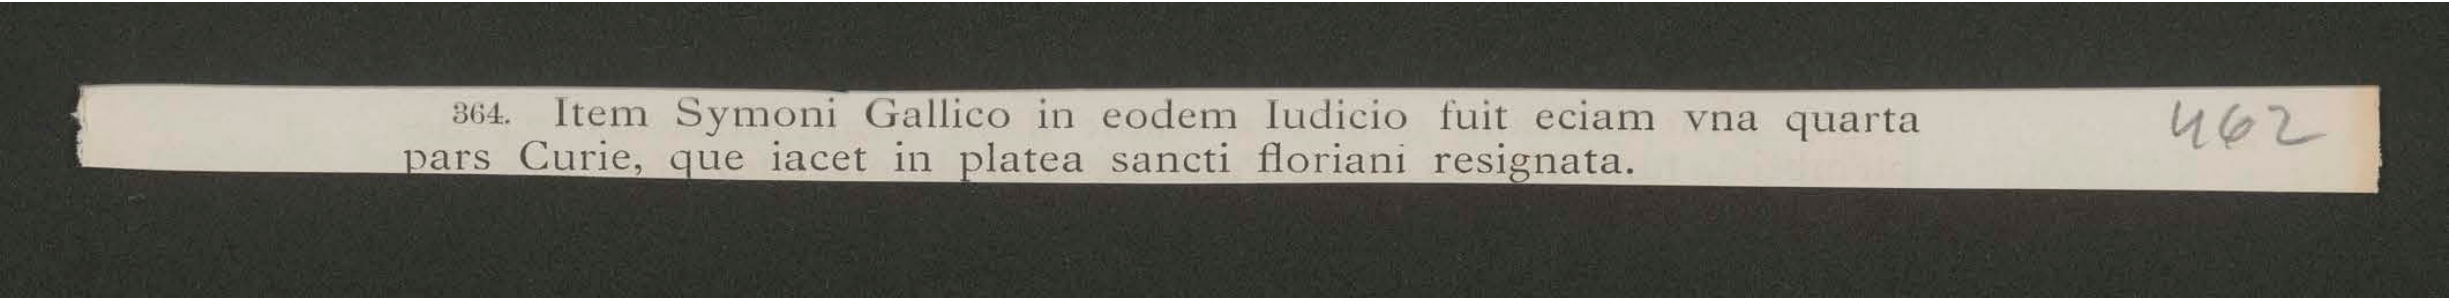 364. Item Symoni Gallico in eodem Iudicio fuit eciam vna quarta 462
pars Curie, que iacet in platea sancti floriani resignata.